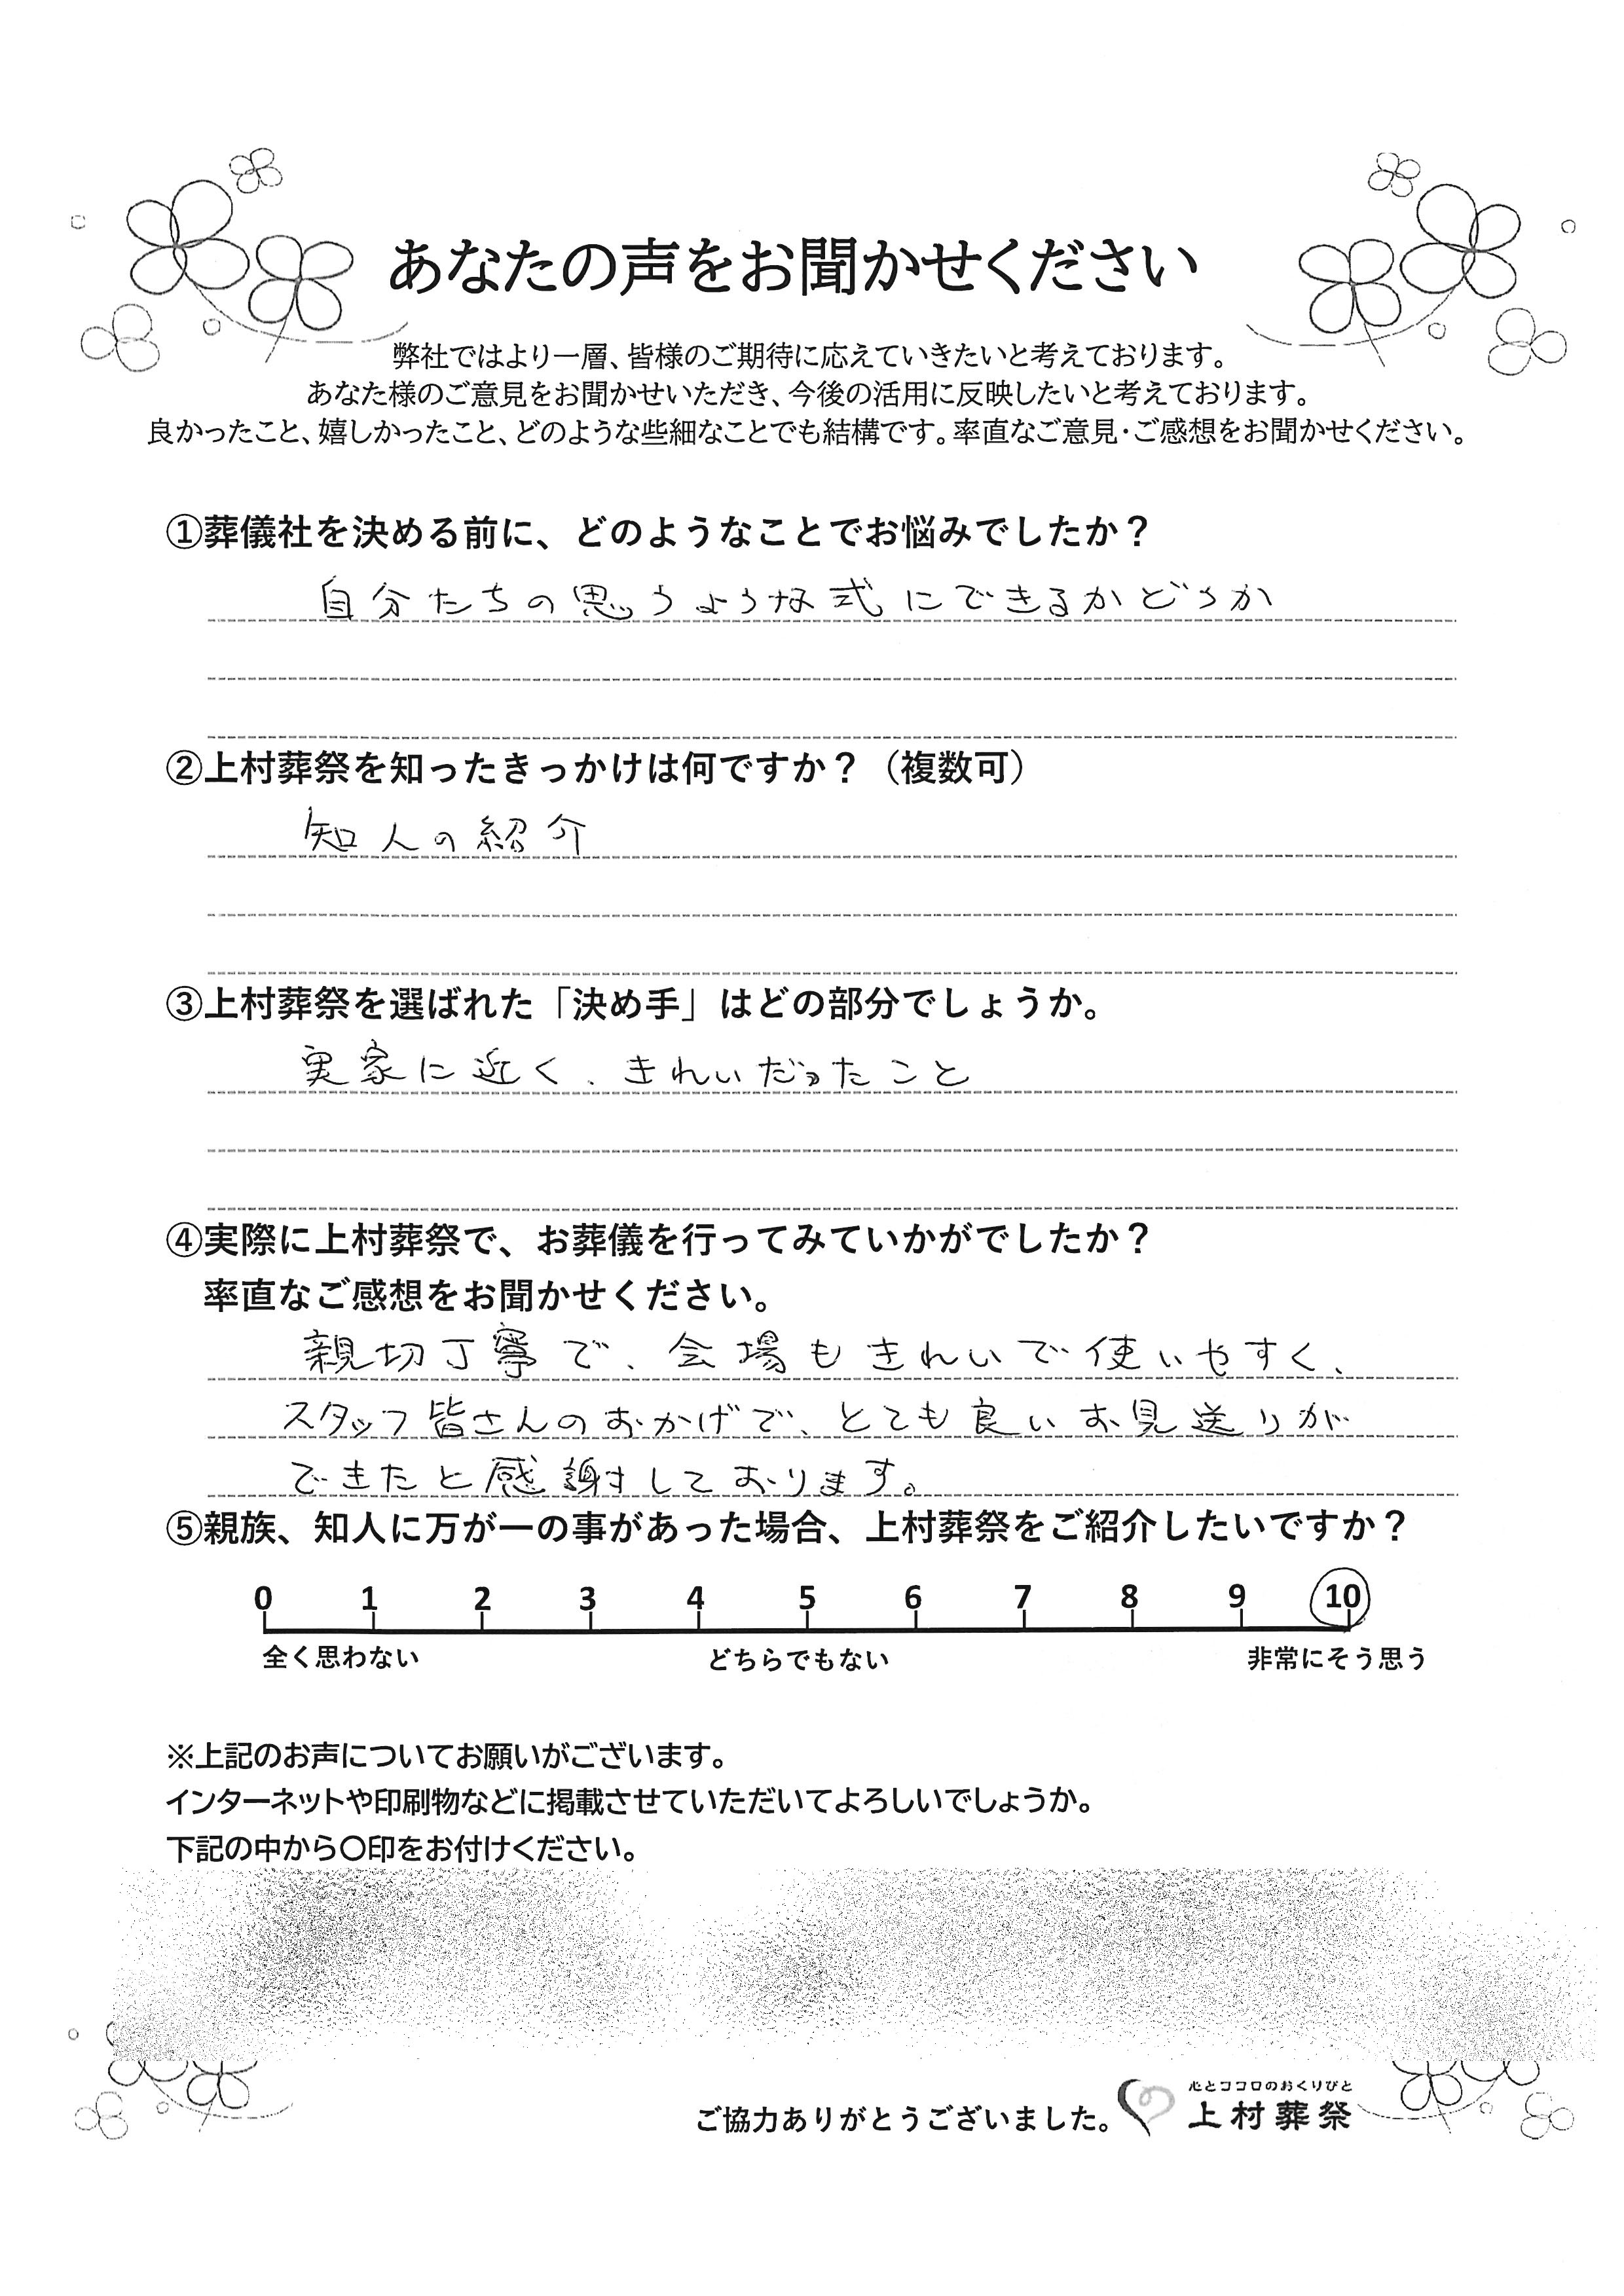 あなたの声をお聞かせください
弊社ではより一層、皆様のご期待に応えていきたいと考えております。
あなた様のご意見をお聞かせいただき、今後の活用に反映したいと考えております。
良かったこと、嬉しかったこと、どのような些細なことでも結構です。率直なご意見・ご感想をお聞かせください。
①葬儀社を決める前に、どのようなことでお悩みでしたか？
自分たちの思うような式にできるかどうか
②上村葬祭を知ったきっかけは何ですか？（複数可）
知人の紹介
③上村葬祭を選ばれた「決め手」はどの部分でしょうか。
実家に近く、きれいだったこと
④実際に上村葬祭で、お葬儀を行ってみていかがでしたか？
率直なご感想をお聞かせください。
親切丁寧で、会場もきれいで使いやすく、
スタッフ皆さんのおかげで、とても良いお見送りが
できたと感謝しております。
⑤親族、知人に万が一の事があった場合、上村葬祭をご紹介したいですか？
0 1 2 3 4 5 6 7 8 9 10
全く思わない どちらでもない 非常にそう思う
※上記のお声についてお願いがございます。
インターネットや印刷物などに掲載させていただいてよろしいでしょうか。
下記の中から〇印をお付けください。
心とココロのおくりびと
ご協力ありがとうございました。 上村葬祭